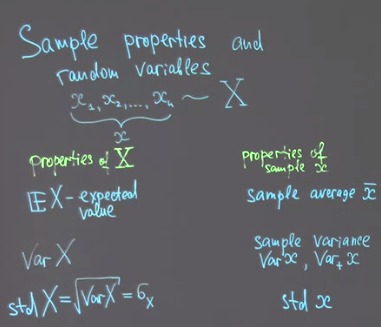 Sample properties and
random variables
x₁, x₂, ..., xₙ ~ X
x
properties of X
𝔼X - expected
value
Var X
std X = √Var X = σₓ
properties of
sample x
sample average x̄
sample variance
Var x, Var₊ x
std x